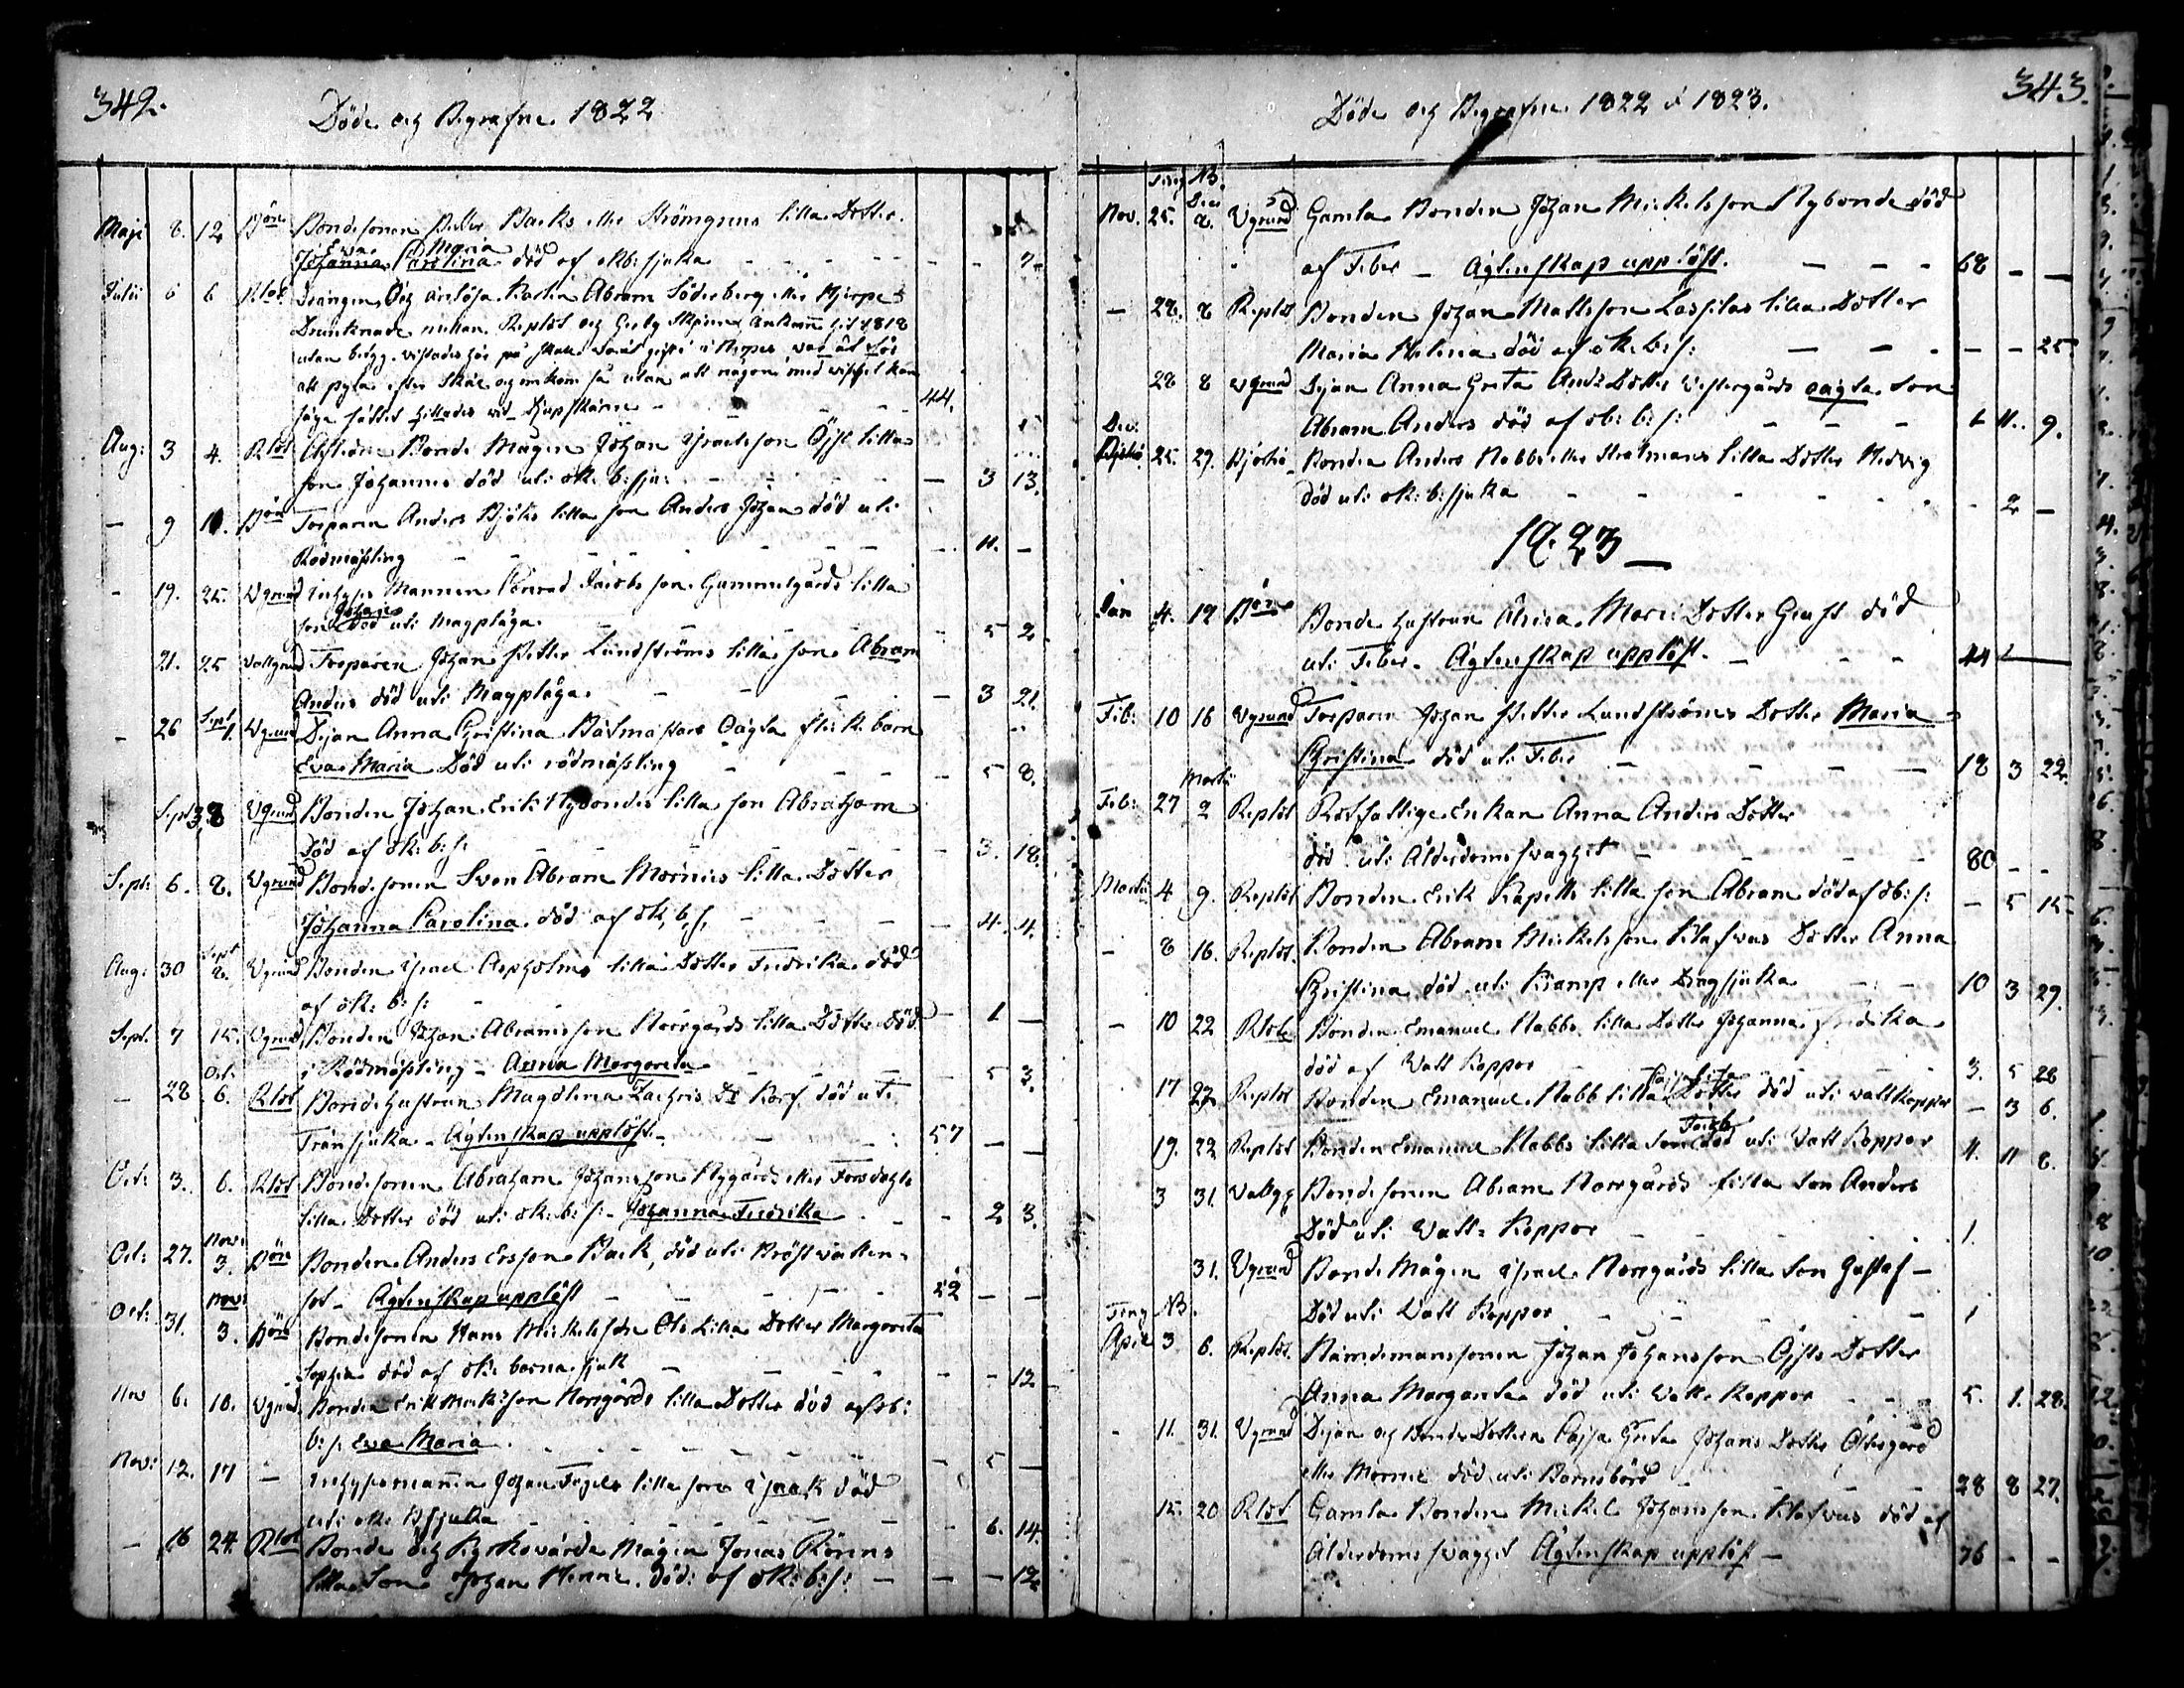 342.
Döde och Begrafne 1822
Maji 8. 12 Bön Bondesonen Petter Backs eller Strömgrens lilla Dotter
Eva Maria
Johanna Carolina död af okb: sjuka - - - 7.
Julii 6 6 Rlot Drängen och arlösa Karlen Abram Söderberg eller Hjerpe
Drunknade mellan Replot och Skärn ankom hit 1818
utan betyg. vistades här på
att efter Skär och omkom så utan att någon med visshet kan
säga sättet hittades vid Djupskäret - - 44.
Aug: 3 4. Rlot Aflidne Bonde Mågen Johan Israelsson Öjst lilla
son Johannes död uti ok: b: sju: - - - 3 13.
- 9 11. Bön Torparen Anders Björks lilla son Anders Johan död uti
Rödmässling - - - 11. -
- 19. 25. Wgrund Inhyses Mannen Conrad Jacobsson Gammelgårds lilla
Johan
son död uti Magplåga. - - - 5 2
21. 25 Vallgrund Torparen Johan Petter Lundströms lilla son Abram
Anders död uti Magplåga. - - - 3 21.
- 26 Sept 1. Wgrund Dejan Anna Christina Båtmästars Oägta flick barn
Eva Maria Död uti rödmässling - - - 5 8.
Sept 3, 8 Vgrund Bonden Johan Erik Nybondes lilla son Abraham
Död af ok: b: s: - - - 3. 18.
Sept: 6. 8. Vgrund Bondesonen Sven Abram Mörnies lilla Dotter
Johanna Carolina. död af ok, b, s, - - - 4. 4.
Aug: 30 Sept 8. Vgrund Bonden Israel Aspholms lilla Dotter Fredrika död
af ok: b: s: - 1 -
Sept. 7 15. Vgrund Bonden Johan Abramsson Norrgårds lilla Dotter Död
i Rödmässling - Anna Margareta - - - 5 3.
- 28 Oct: 6. Rlot Bondehustrun Magdlena Zachris Dr Korf. död uti
Trånsjuka - Ägtenskap upplöst - - - 57 - -
Oct: 3. 6. Rlot Bondesonen Abraham Johansson Nygårds eller
lilla Dotter död uti ok: b: s: - Johanna Fredrika - - 2 3.
Oct: 27. Nov: 3. Bön Bonden Anders Ersson Back, död uti Bröst watten-
sot - Ägtenskap upplöst - - - 52 - -
Oct: 31. Nov: 3. Bön Bondesonen Hans Mickelsson lilla Dotter Margareta
Sophia död af ok: barnasjuk - - - 12
Nov 6. 10. Vgrund. Bonden Erik Mickelsson Norrgårds lilla Dotter död af ob:
b: s: Eva Maria. - - - 5 -
Nov: 12. 17 - Inhysesmannen Johan Fogels lilla son Isaack död
uti ok: Bsjuka - - - 6. 14.
- 16 24. Rlot Bonde och Kyrkovärde Mågen Jonas Rönns
lilla Son Johan Henric. död: af ok: b: s: - - - 12
343.
Döde och Begrafne 1822 & 1823.
NB.
Nov. 25. Dec 8. Vgrund Gamla Bonden Johan Mickelsson Nybonde död
af Feber - Ägtenskap upplöst. - - - 68 - -
- 28. 8 Replot Bonden Johan Mattsson Lassilas lilla Dotter
Maria Helena död af ok. b: s: - - - - 25
28 8 Wgrund Dejan Anna Greta Ands Dotter Westergårds oägta Son
Abram Anders död af ob: b: s: - - - 11. 9.
Dec:
Björkö 25. 29. Björkö Bonden Anders Nabbs eller Stratmans lilla Dotter Hedvig
död uti ok: b: sjuka - - - 2 -
1823 -
Jan 4. 12 Bön Bonde hustrun Carisa Maria Dotter död
uti Feber. Ägtenskap upplöst. - - - 44
Feb: 10 16 Vgrund Torparen Johan Petter Lundströms Dotter Maria
Christina död uti Feber - - - 18 3 22.
Feb: 27 Martii 2 Replot Rotfattige Enkan Anna Anders Dotter
död uti Ålderdomsswaghet - - - 80 - -
Martii 4 9. Replot Bonden Erik Kapells lilla son Abram död af ob: s: - 5 15
- 8 16. Replot. Bonden Abram Mickelsson Klafvus Dotter Anna
Christina död uti Kramp eller Dragsjuka - - 10 3 29.
- 10 22 Rlot Bonden Emanuel Nabbs lilla Dotter Johanna Fredrika
död af Watt Koppor - - - 3. 5 28
17 22 Replot Bonden Emanuel Nabb lilla Dotter död uti wattkoppor - 3 6.
Jacob
19. 22 Replot Bonden Emanuel Nabbs lilla Son död uti Watt Koppor 4. 11 8.
3 31. Vallgr Bondesonen Abram Norrgårds lilla Son Anders
Död uti Watt-Koppor - - - 1.
31. Vgrund Bonde Mågen Israel Norrgårds lilla Son Gustaf -
NB. Död uti Watt Koppor - - - 1
April 3 6. Replot. Nämdemanssonen Johan Johansson Öjsts Dotter
Anna Margareta död uti Watt-Koppor - - 5. 1. 28.
- 11. 31. Vgrund Dejan och Bonde Dottern Cajsa Greta Johans Dotter Östergård
eller Mörnie död uti Barnsbörd - - - 28 8 27.
15. 20 Rlot Gamla Bonden Mickel Johansson Klafvus död af
Ålderdomsswaghet Ägtenskap upplöst - 76 - -